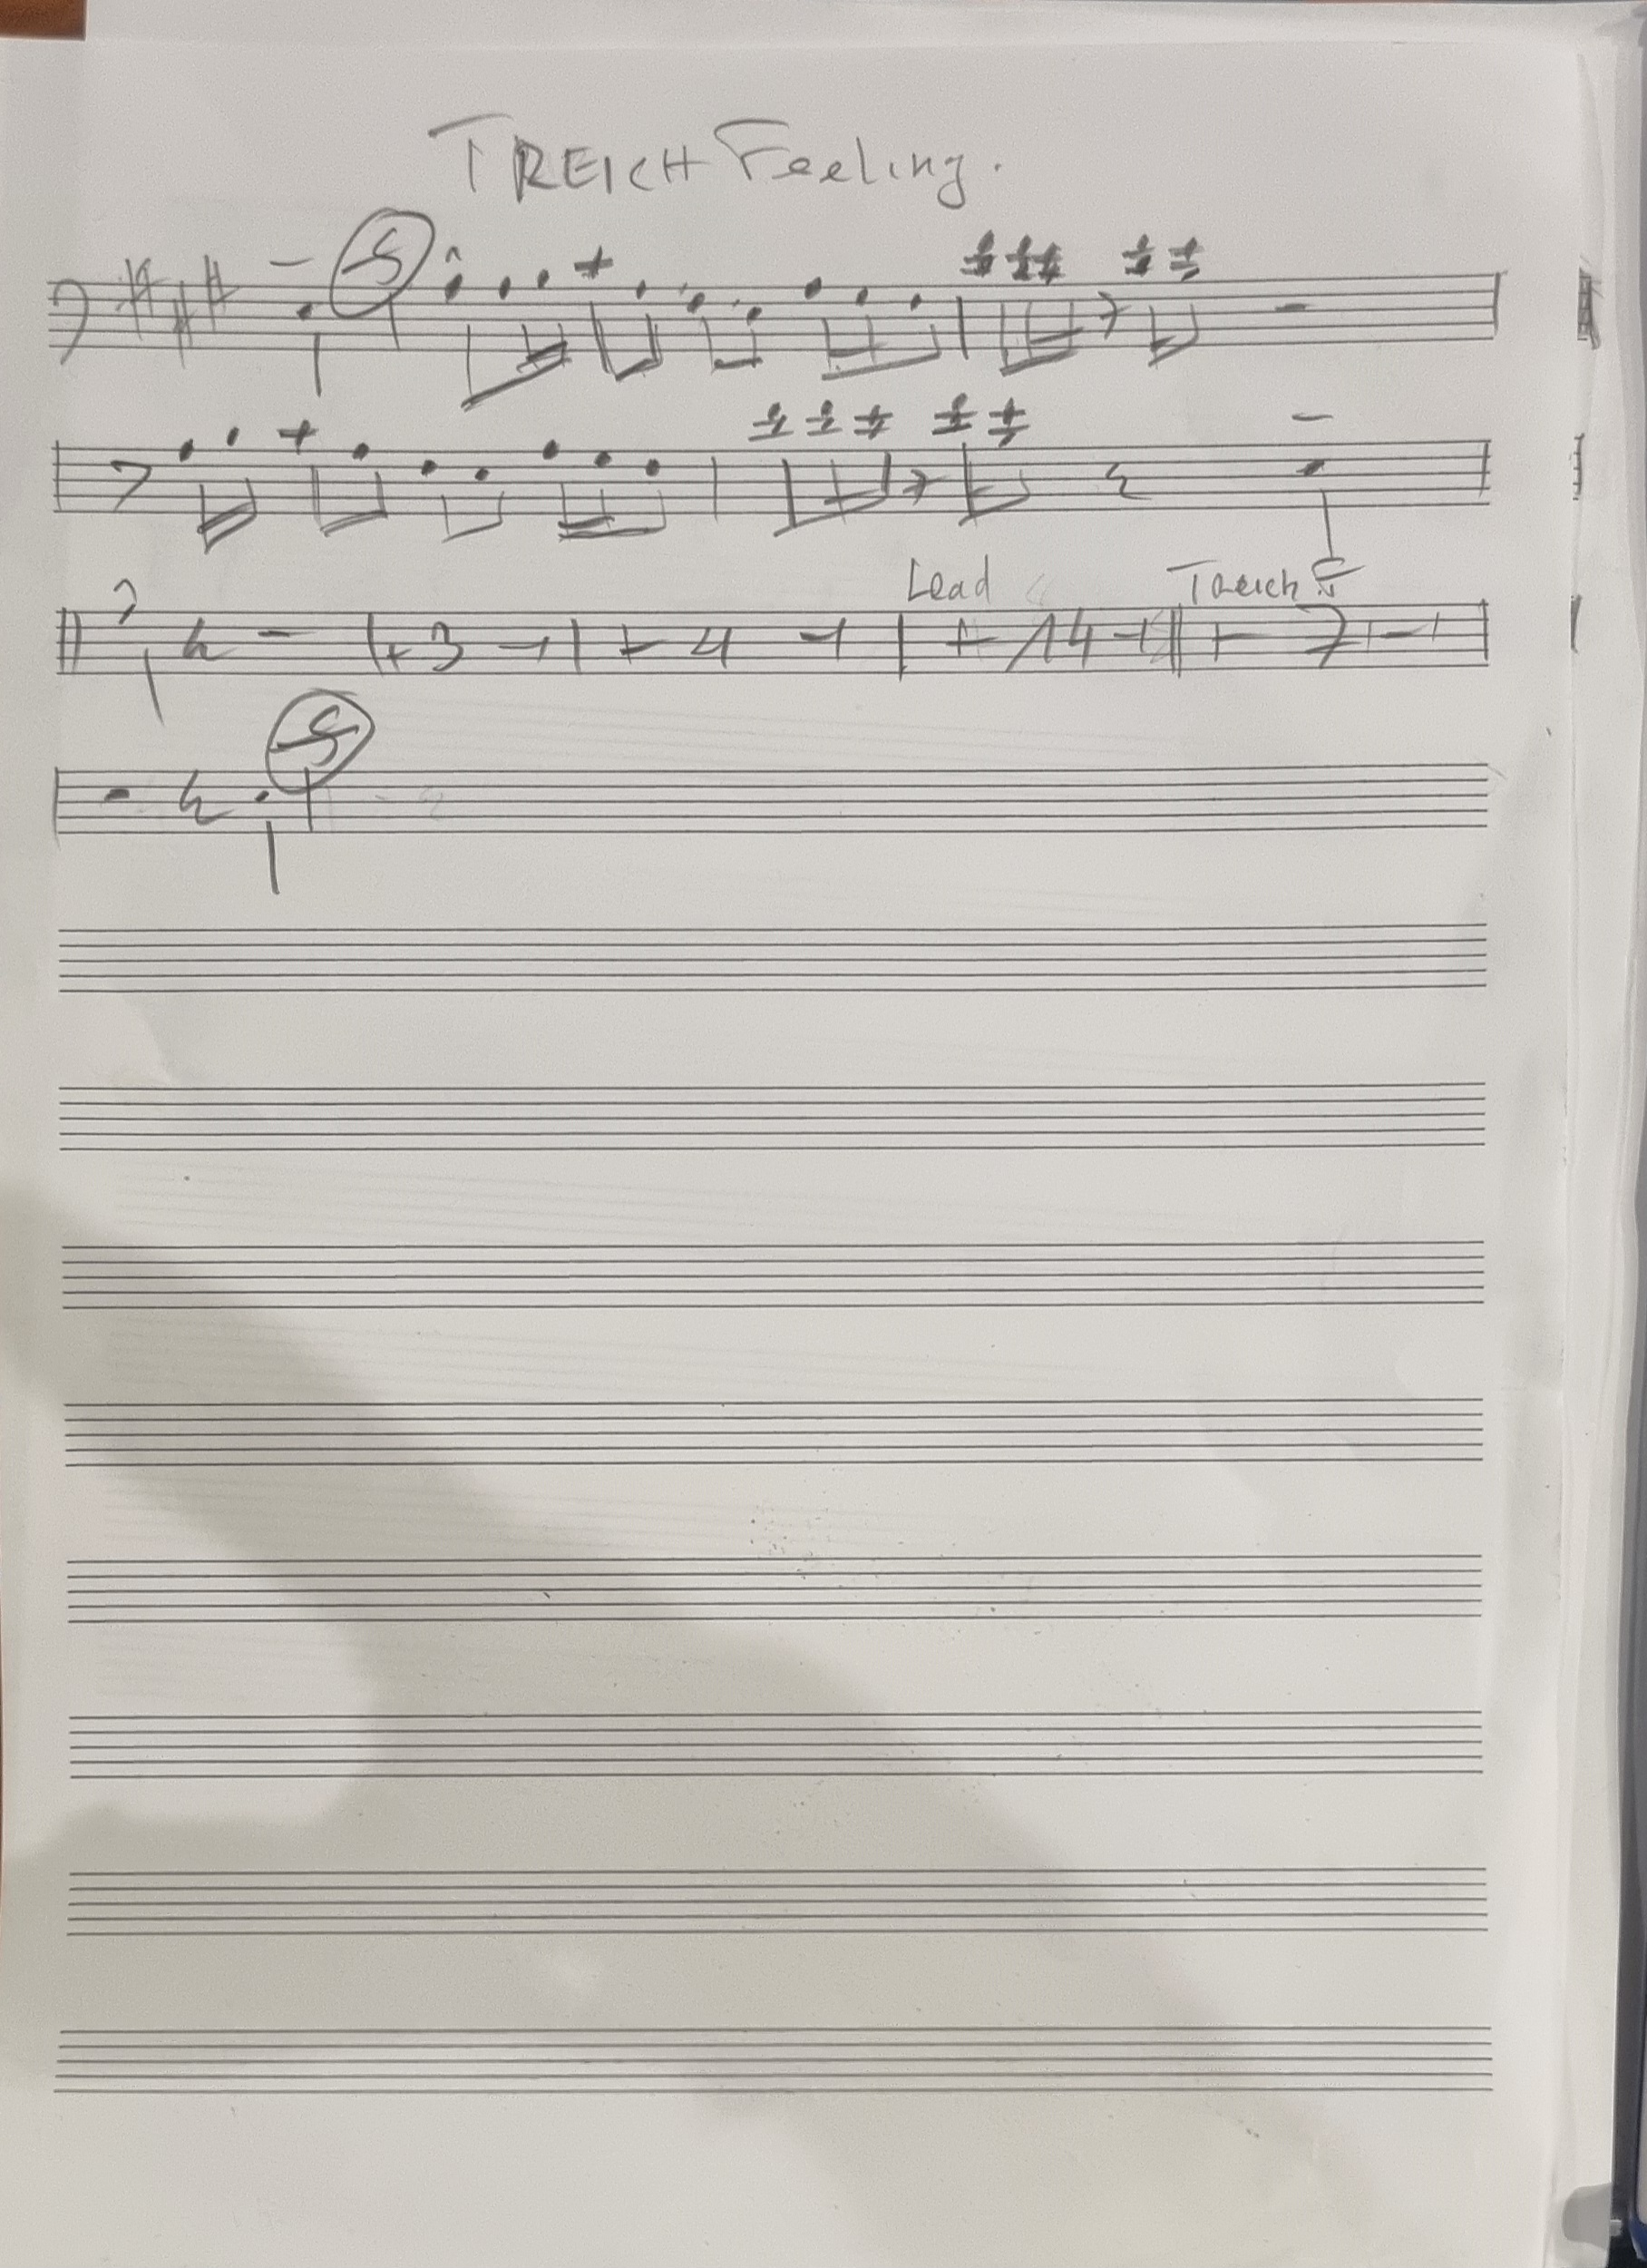 TREICH Feeling.
Lead Treich
3 4 14 7